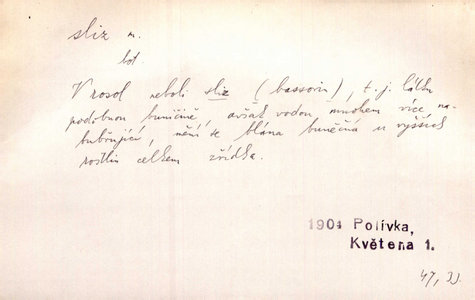 sliz m.
bot
V rosol neboli sliz (bassorin), t. j. látku
podobnou buničině, avšak vodou mnohem více na-
bubřující, mění se blána buněčná u vyšších
rostlin celkem zřídka.
1901 Polívka,
Květena 1.
47, 33